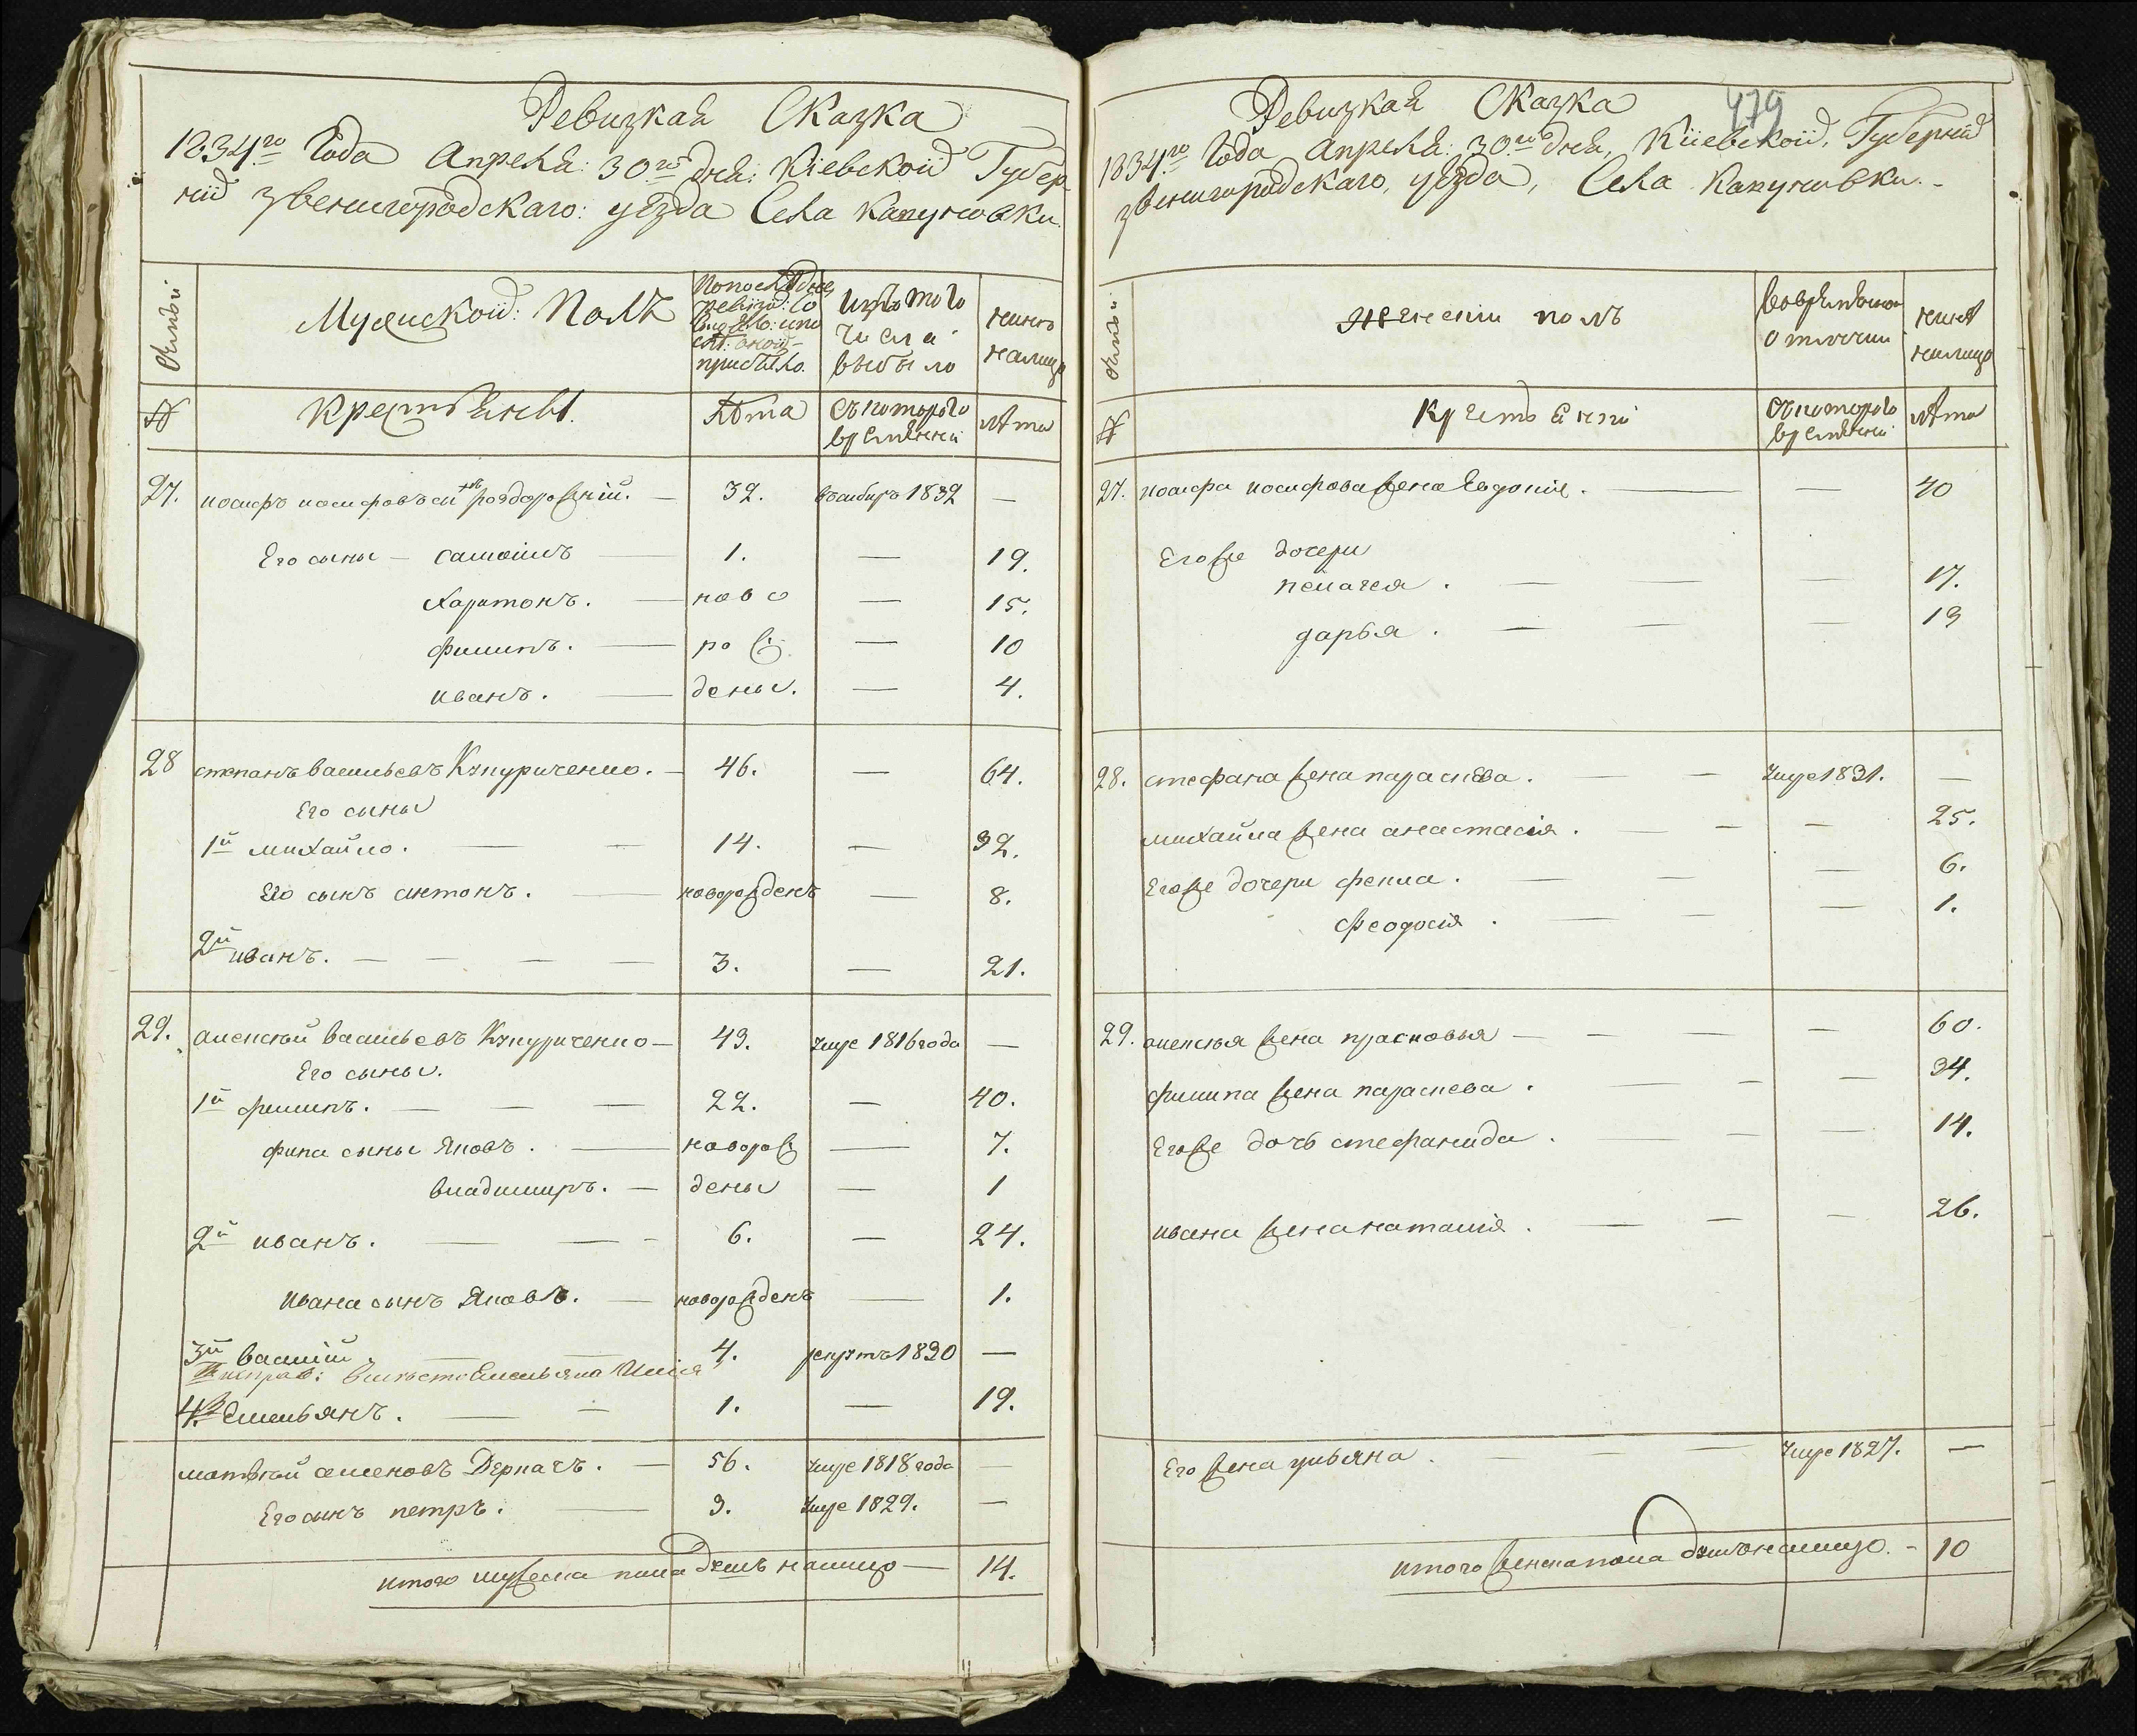 Ревизкая Сказка
1834го Года Апреля: 30го дня: Кіевской Губер
ніи Звенигородскаго: уѣзда Села Капуновки
Семьи
Мужеской: Полъ
По последней
ревизіи: со
прибыло.
Изъ того
числа
выбыло
нынѣ
налицо
№
Крестьяне.
Лѣта
Съ котораго
времянни
Лѣта
27. иосифъ иосифовъ сынъ роздорожній. — 32. 1832 —
Его сыны — самоилъ — 1. — 19.
Харитонъ. — ново — 15.
филипъ. — рож — 10
иванъ. — дены. — 4.
28 степанъ васильевъ Кнпуриченко. — 46. — 64.
Его сыны
1й михайло. — — 14. — 32.
Его сынъ антонъ. — новорожденъ — 8.
2й иванъ. — — — — 3. — 21.
29. алексѣй васильевъ Кнпуриченко — 43. умре 1816 года —
Его сыны.
1й филипъ. — — — 22. — 40.
фипа сыны Яковъ. — новорож — 7.
владимиръ. — дены — 1
2й иванъ. — — - 6. — 24.
Ивана сынъ Яковъ. — новорожденъ — 1.
3й василій. — — 4. рекрутъ 1830 —
вмѣсто Емельяна Илія
4й Емельянъ. — — 1. — 19.
матвѣй семеновъ Деркачъ. — 56. умре 1818 года —
Его сынъ петръ. — 9. умре 1829. —
итого мужеска пола душъ налицо — 14.
479
Ревизкая Сказка
1834го Года Апреля: 30го дня, Кіевской, Губерніи
Звенигородскаго, уѣзда, Села Капуновки. -
Семьи
Женскій полъ
Во времянной
отлучки
нынѣ
налицо
№
Крестьянки
Съ котораго
времянни
лѣта
27. иосифа иосифова жена Евдокия. — — 40
Его же дочери
пелагея. — — — 17.
дарья. — — — 13
28. стефана жена параскева. — — умре 1831. —
михайла жена анастасія. — — — 25.
Его же дочери фекла. — — — 6.
феодосія. — — — 1.
29. алексѣя жена прасковья — — — 60.
филипа жена параскева. — — — 34.
Его же дочь стефанида. — — — 14.
ивана жена наталія. — — — 26.
Его жена ульяна. — — умре 1827. —
итого женска пола душъ налицо. - 10